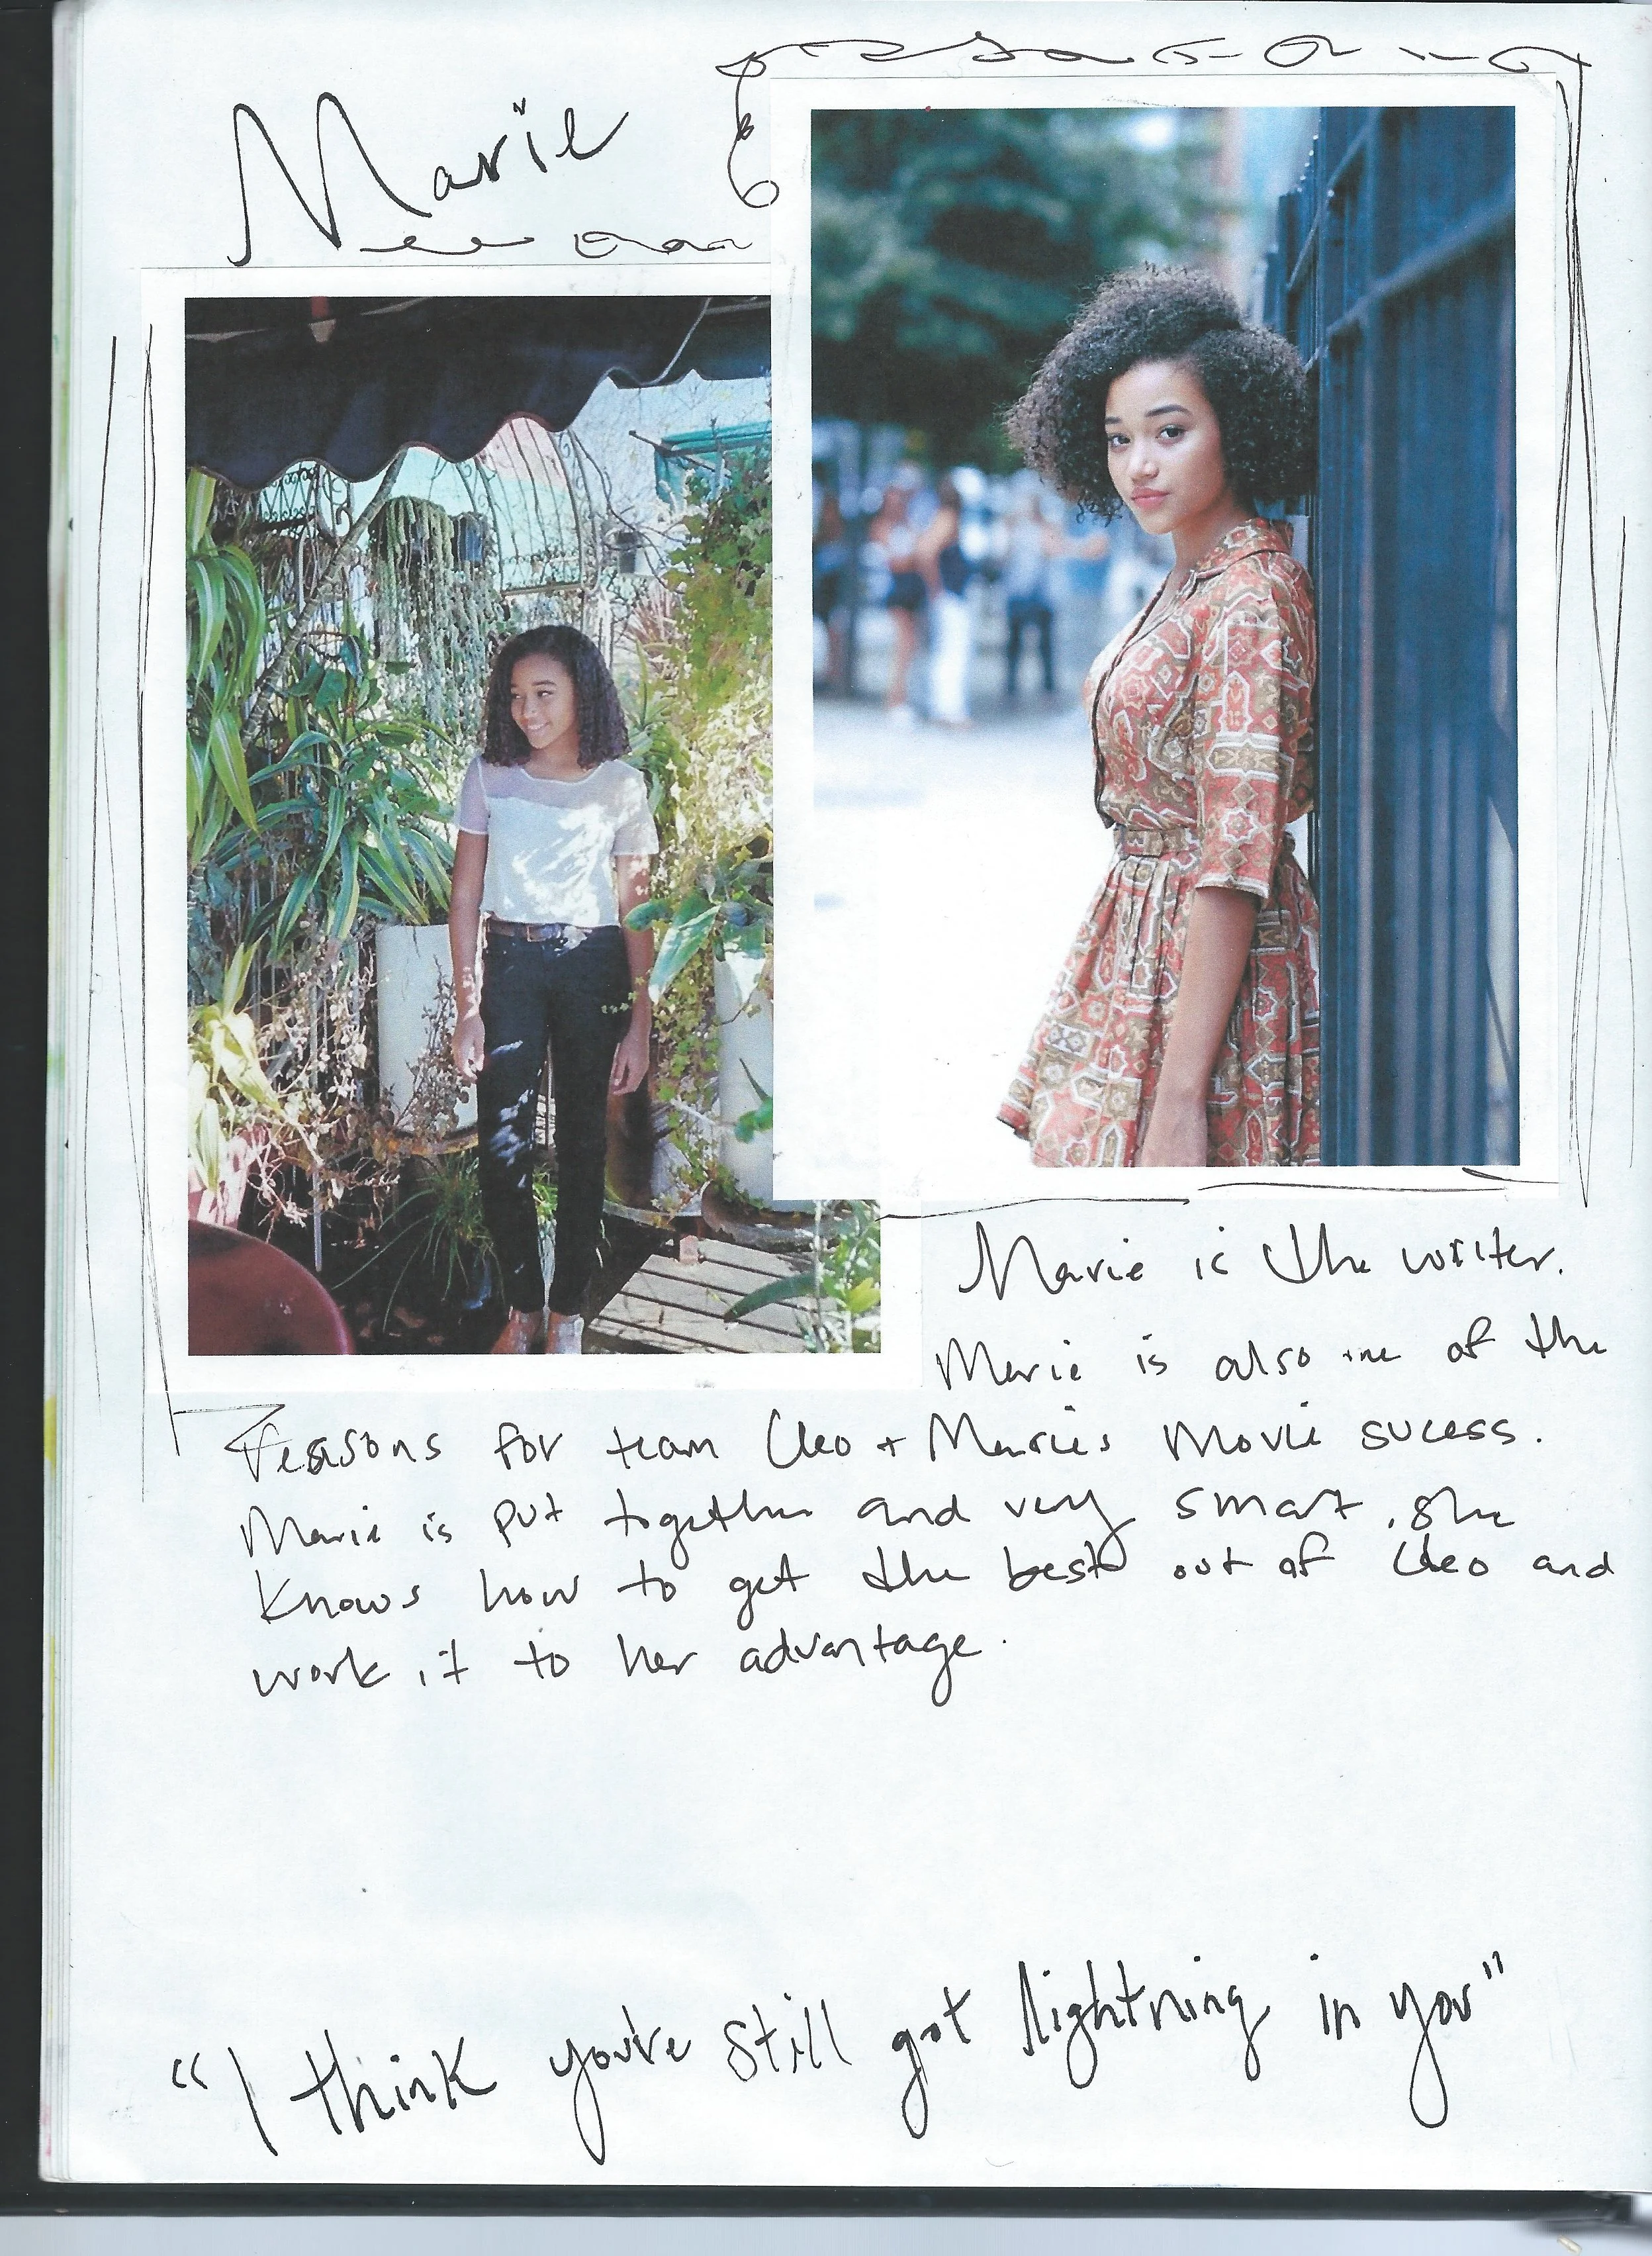 Marie
Marie is the writer.
Marie is also one of the
reasons for team Cleo + Maries Movie sucess.
Marie is put together and very smart. She
knows how to get the best out of Cleo and
work it to her advantage.
"I think you're still got lightning in you"